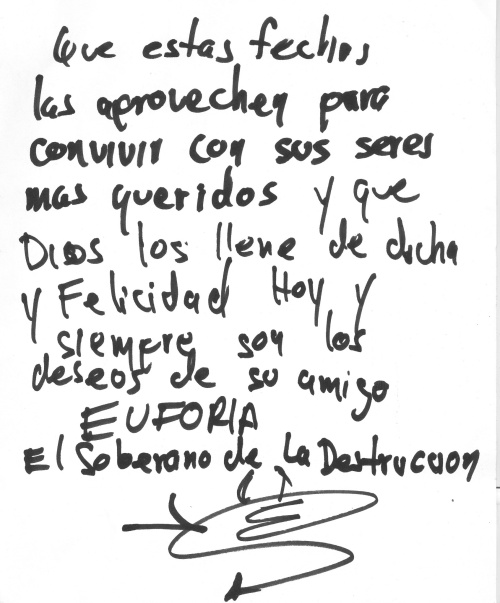 Que estas fechas
las aprovechen para
convivir con sus seres
mas queridos y que
Dios los llene de dicha
y Felicidad Hoy y
siempre son los
deseos de su amigo
EUFORIA
El Soberano de La Destruccion